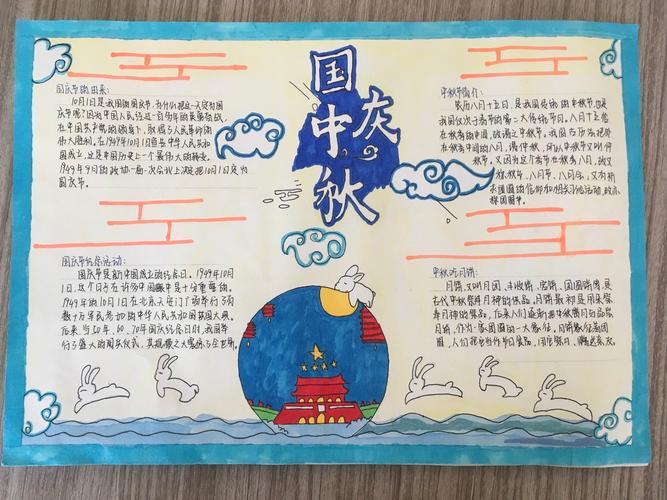 国庆
中秋
国庆节的由来:
10月1日是我国的国庆节,为什么把这一天定为国
庆节呢?因为中国人民经过一百多年的英勇奋战,
在中国共产党的领导下,取得了人民革命的
伟大胜利。在1949年10月1日宣告中华人民共和
国成立,这是中国历史上一个最伟大的转变。
1949年9月的政协一届一次会议上决定把10月1日定为
国庆节。
国庆节纪念活动:
国庆节是新中国成立的纪念日。1949年10月
1日,这个日子在许多中国人中是十分重要的。
1949年的10月1日在北京天安门广场举行了
数十万军民参加的中华人民共和国开国大典。
后来,每50年、60、70年国庆纪念日时,我国举
行了盛大的阅兵仪式,
中秋节简介:
农历八月十五日,是我国传统的中秋节,也是
我国仅次于春节的第二大传统节日。八月十五恰
在秋季的中间,故谓之中秋节。我国古历法把处
在秋季中间的八月,谓仲秋,所以中秋节又叫仲
秋节。又因为这个节日在秋季八月,故又
称秋节、八月节、八月会;又有祈
求团圆的信仰和相关习俗活动,故亦
称团圆节。
中秋吃月饼:
月饼,又叫月团、丰收饼、宫饼、团圆饼等,是
古代中秋祭拜月神的供品。月饼最初是用来祭
奉月神的供品。后来人们逐渐把中秋赏月与品尝
月饼,作为家人团圆的一大象征。月饼象征着团
圆,人们把它当作节日食品,